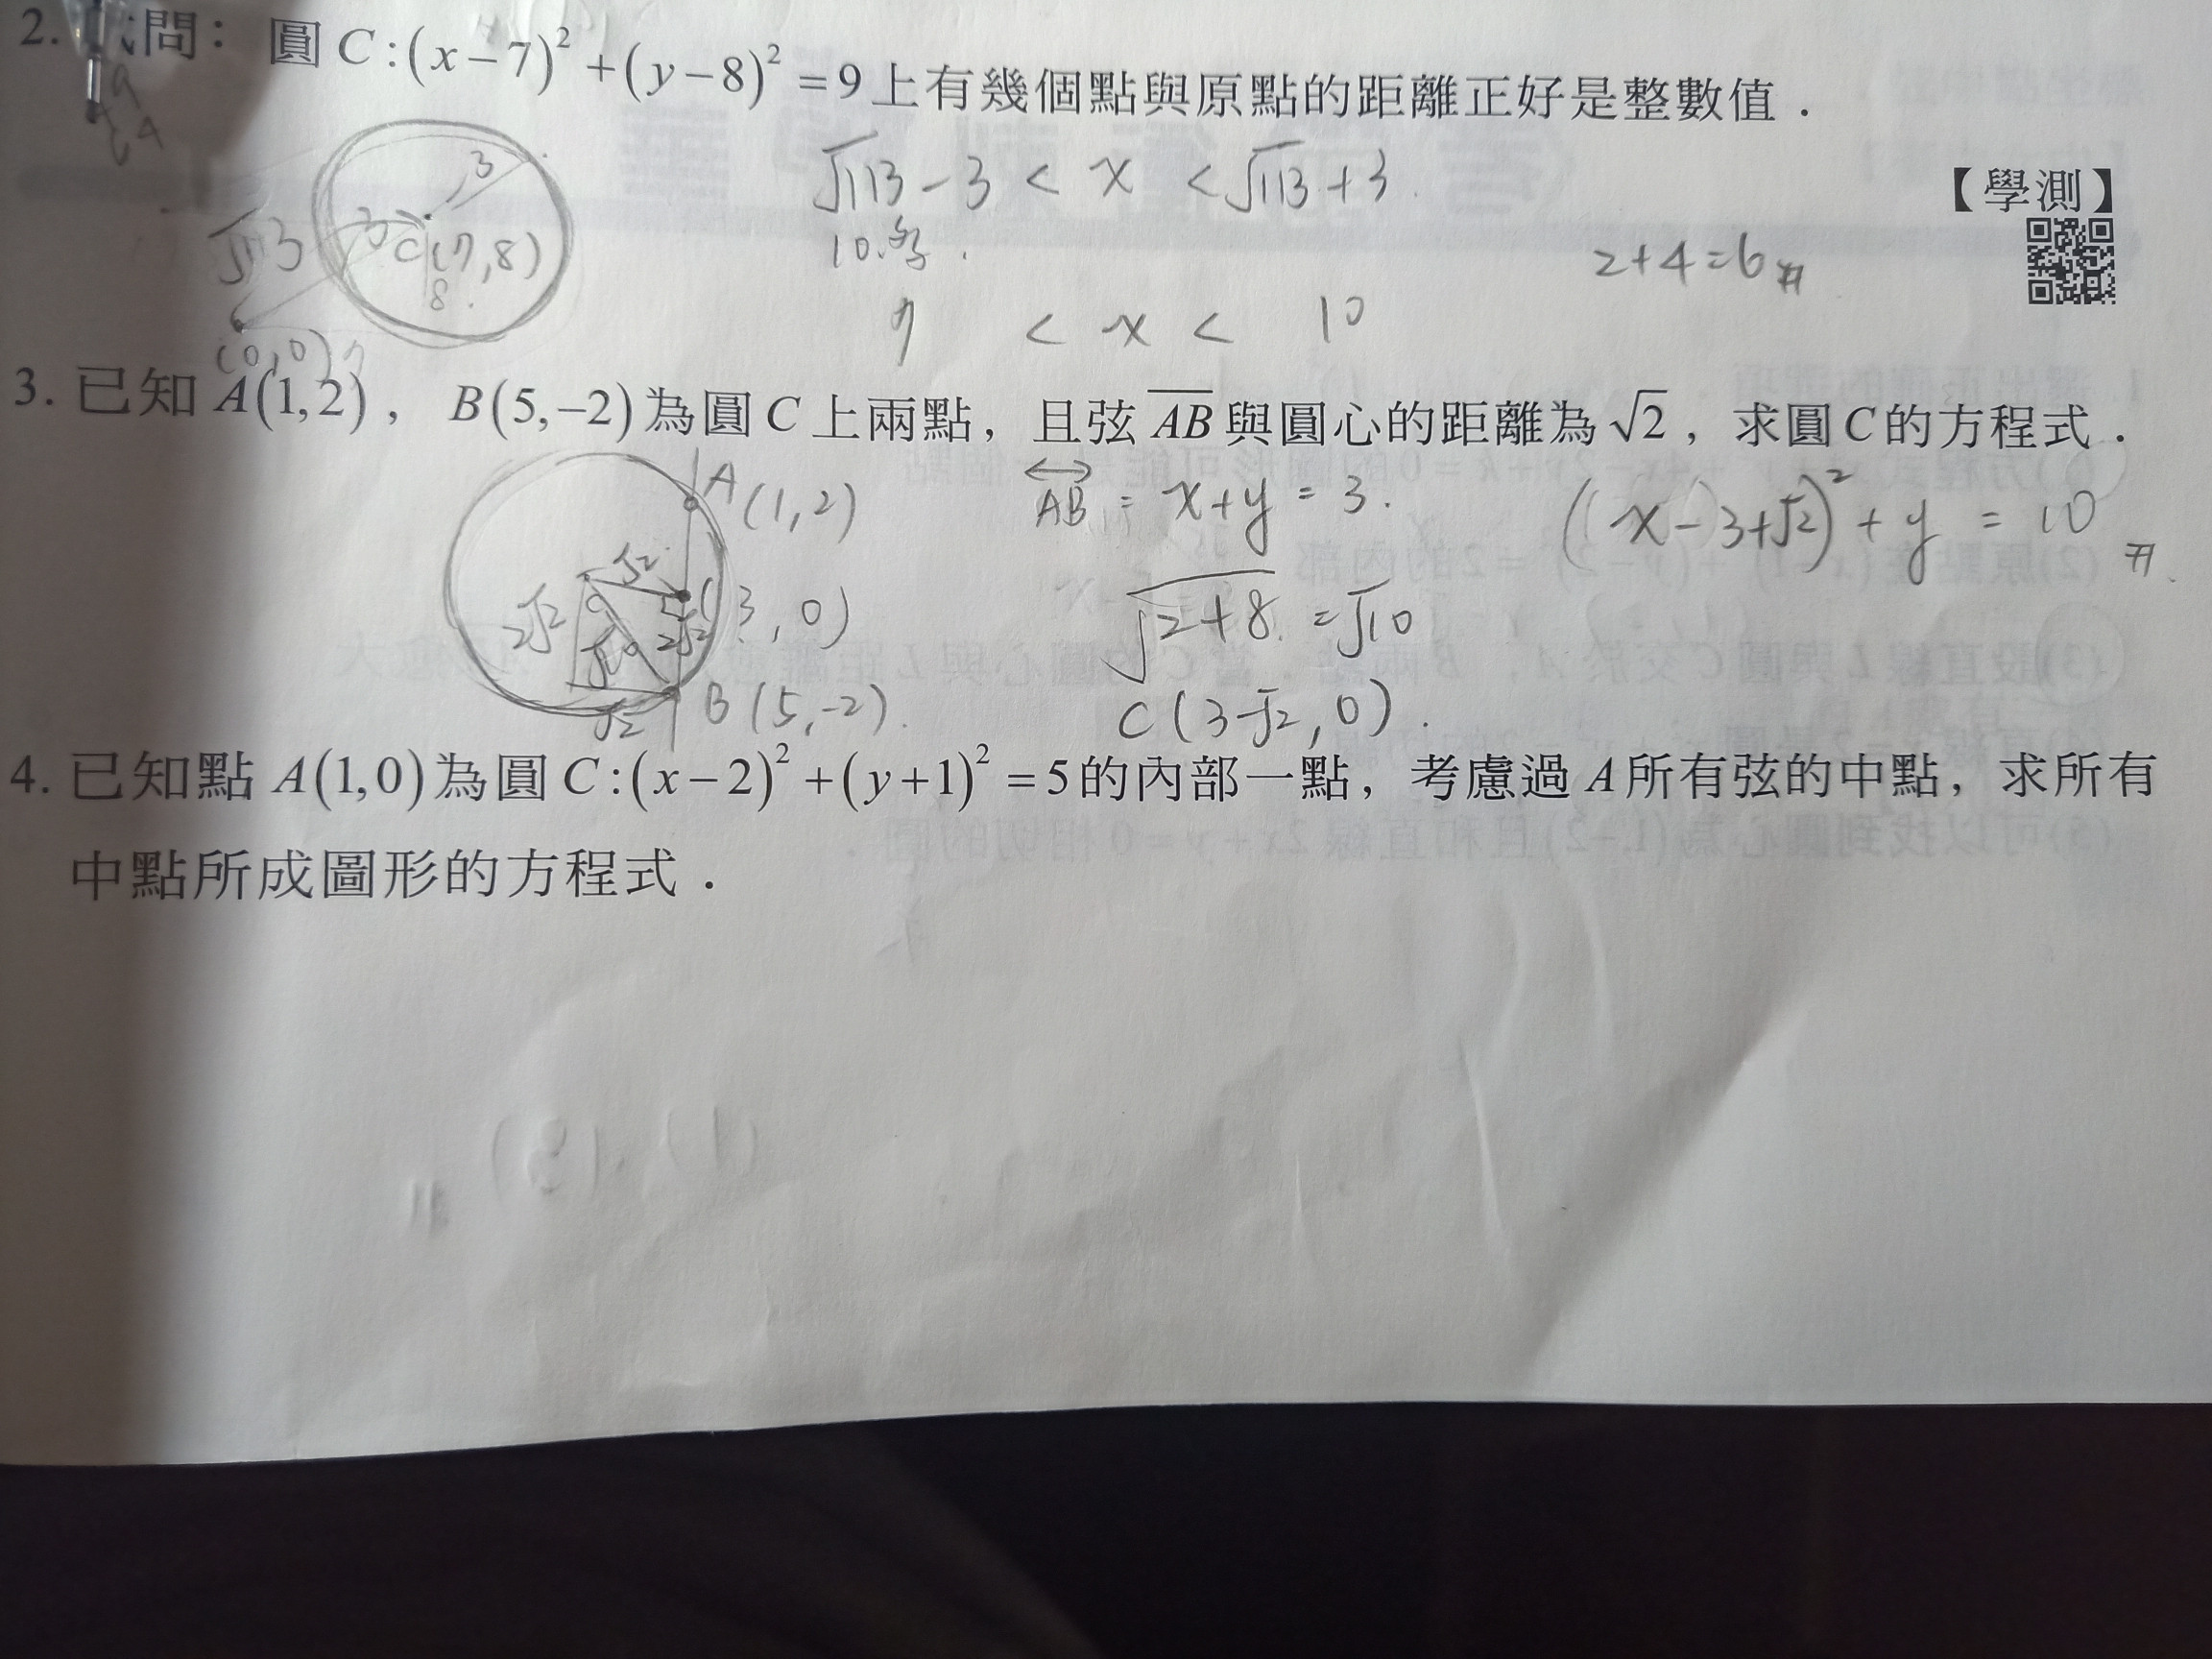 2. 問： 圓 C:(x−7)²+(y−8)²=9上有幾個點與原點的距離正好是整數值．
【學測】
3
√113
3
C(7,8)
8
(0,0)
7
√113 − 3 < x < √113 + 3
10.多
7 < x < 10
2+4=6#
3. 已知 A(1,2)， B(5,−2)為圓 C 上兩點，且弦 AB 與圓心的距離為√2，求圓 C 的方程式．
A(1,2)
√2
2√2
(3,0)
2√2
√10
√2
B(5,-2).
AB : x+y = 3.
√2+8 = √10
C(3-√2,0).
(x-3+√2)²+y = 10 #
4. 已知點 A(1,0)為圓 C:(x−2)²+(y+1)²=5的內部一點，考慮過 A 所有弦的中點，求所有
中點所成圖形的方程式．